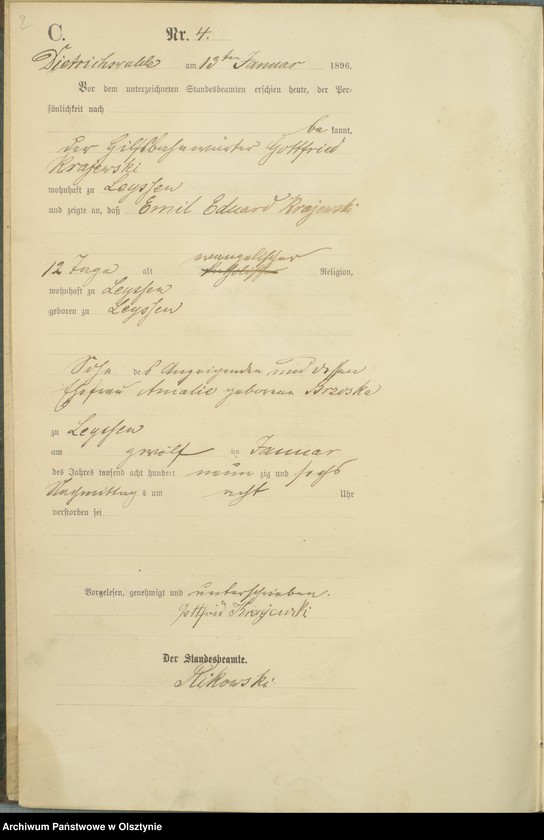 2
C. Nr. 4.
Dietrichswalde am 13ten Januar 1896.
Vor dem unterzeichneten Standesbeamten erschien heute, der Per-
sönlichkeit nach
be kannt,
der Hilfsbahnwärter Gottfried
Krajewski
wohnhaft zu Leyssen
und zeigte an, daß Emil Eduard Krajewski
evangelischer
12 Tage alt katholischer Religion,
wohnhaft zu Leyssen
geboren zu Leyssen
Sohn des Anzeigenden und dessen
Ehefrau Amalie geborene Brzoska
zu Leyssen
am zwölf ten Januar
des Jahres tausend acht hundert neun zig und sechs
Nachmittags um acht Uhr
verstorben sei
Vorgelesen, genehmigt und unterschrieben.
Gottfried Krajewski
Der Standesbeamte.
Archiwum Państwowe w Olsztynie